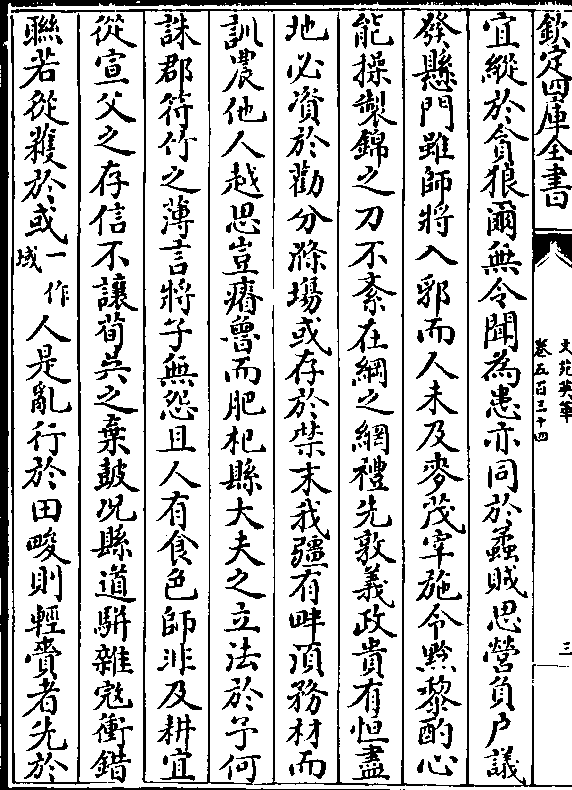 欽定四庫全書
文苑英華
卷五百三十四
三
宜縱於貪狼爾無令聞為患亦同於蟊賊思營負户議
發懸門雖師將入郛而人未及麥茂宰施令黔黎酌心
能操製錦之刀不紊在綱之網禮先敦義政貴有恒盡
地必資於勸分滌場或存於禁末我疆有畔湏務材而
訓農他人越思豈瘠魯而肥杞縣大夫之立法於予何
誅郡符竹之薄言將子無怨且人有食色師非及耕宜
從宣父之存信不讓荀吳之棄鼓况縣道駢雜寇衝錯
聯若從穫於或一作域人是亂行於田畯則輕賫者先於